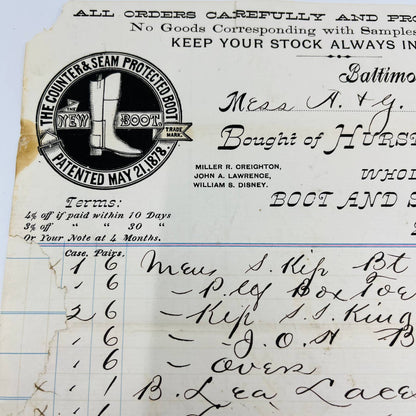 ALL ORDERS CAREFULLY AND PRO
No Goods Corresponding with Samples
KEEP YOUR STOCK ALWAYS IN
THE COUNTER & SEAM PROTECTED BOOT
THE
NEW BOOT.
TRADE MARK.
PATENTED MAY 21, 1878
Baltimo
Mess A. & G.
Bought of HURST
MILLER R. CREIGHTON,
JOHN A. LAWRENCE,
WILLIAM S. DISNEY.
WHOL
BOOT AND S
Terms:
4% off if paid within 10 Days
3% off " " 30 "
Or Your Note at 4 Months.
Case. Pairs.
1 6 Mens S. Kip Bt
6 - Plg Box Toe
2 6 - Kip S.S. King
6 - J.O.H B
6 - Over
1 B. Lea Lace